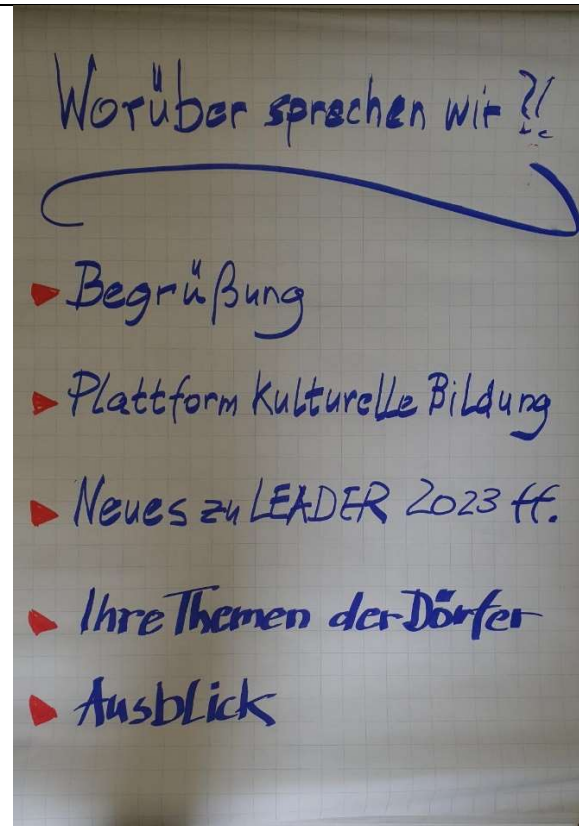 Worüber sprechen wir ?!
Begrüßung
Plattform Kulturelle Bildung
Neues zu LEADER 2023 ff.
Ihre Themen der Dörfer
Ausblick